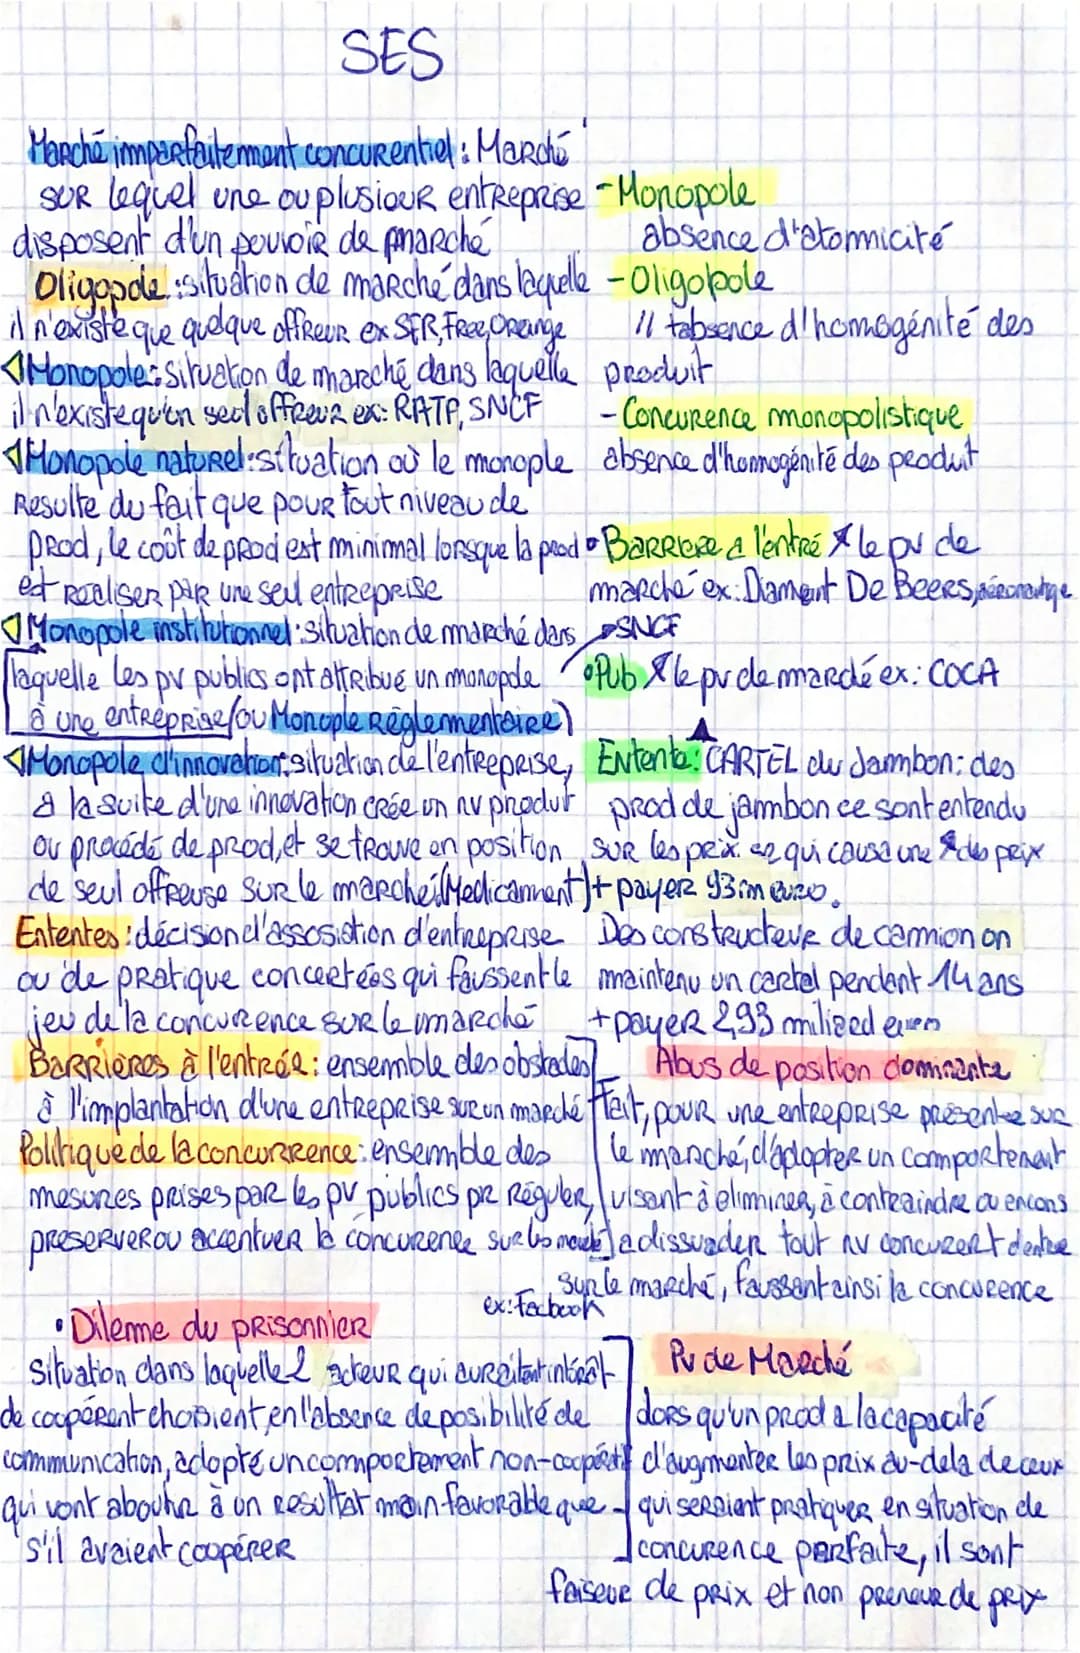 SES
Marché imparfaitement concurentiel : Marché
sur lequel une ou plusieur entreprise
disposent d'un pouvoir de marché
Oligopole : situation de marché dans laquelle
il n'existe que quelque offreur ex SFR, Free, Orange
Monopole : situation de marché dans laquelle
il n'existe qu'un seul offreur ex: RATP, SNCF
Monopole naturel : situation où le monople
Resulte du fait que pour tout niveau de
prod, le coût de prod est minimal lorsque la prod
est realiser par une seul entreprise
Monopole institutionnel : situation de marché dans
laquelle les pv publics ont attribué un monopole
à une entreprise (ou Monople Réglementaire)
Monopole d'innovation : situation de l'entreprise,
à la suite d'une innovation crée un nv produit
ou procédé de prod, et se trouve en position
de seul offreuse sur le marché (Medicamment)
Ententes : décision d'assosiation d'entreprise
ou de pratique concertées qui faussent le
jeu de la concurence sur le marché
Barrières à l'entrée : ensemble des obstacles
à l'implantation d'une entreprise sur un marché
Politique de la concurrence : ensemble des
mesures prises par les pv publics pr réguler,
preserver ou accentuer la concurence sur les marché
• Dilemme du prisonnier
Situation dans laquelle 2 acteur qui auraitent intérêt
de coopérent choisient, en l'absence de posibilité de
communication, adopté un comportement non-coopératif
qui vont aboutir à un resultat moin favorable que
s'il avaient coopérer
- Monopole
absence d'atomicité
- Oligopole
// + absence d'homogénité des
produit
- Concurence monopolistique
absence d'homogénité des produit
• Barriere a l'entré ↗ le pv de
marché ex: Diamant De Beers, aéronautique
→ SNCF
• Pub ↗ le pv de marché ex: COCA
Entente : CARTEL du Jambon : des
prod de jambon ce sont entendu
sur les prix ce qui causa une ↗ des prix
+ payer 93 m euro.
Des constructeur de camion on
maintenu un cartel pendant 14 ans
+ payer 2,93 miliard euro
Abus de position dominante
Fait, pour une entreprise présente sur
le marché, d'adopter un comportement
visant à éliminer, à contraindre ou encore
a dissuader tout nv concurent d'entre
sur le marché, faussant ainsi la concurence
ex: Facbook
Pv de Marché
lors qu'un prod a la capacité
d'augmenter les prix au-dela de ceux
qui seraient pratiquer en situation de
concurence parfaite, il sont
faiseur de prix et non preneur de prix